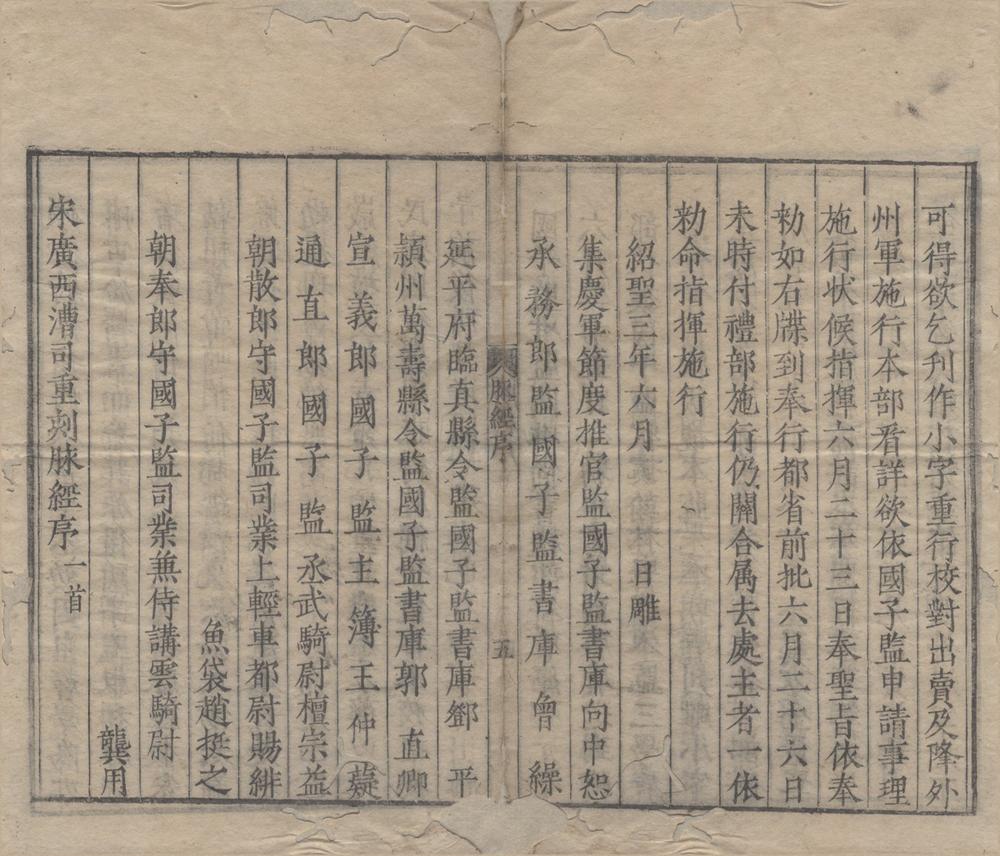 可得欲乞刋作小字重行校對出賣及降外
州軍施行本部看詳欲依國子監申請事理
施行狀候指揮六月二十三日奉聖旨依奉
勑如右牒到奉行都省前批六月二十六日
未時付禮部施行仍關合属去處主者一依
勑命指揮施行
紹聖三年六月 日雕
集慶軍節度推官監國子監書庫向中恕
承務郎監國子監書庫曾繰
延平府臨真縣令監國子監書庫鄧平
潁州萬壽縣令監國子監書庫郭直卿
宣義郎國子監主簿王仲嶷
通直郎國子監丞武騎尉檀宗益
朝散郎守國子監司業上輕車都尉賜緋
魚袋趙挺之
朝奉郎守國子監司業兼侍講雲騎尉
龔用
宋廣西漕司重刻脉經序 一首
脉經序
五